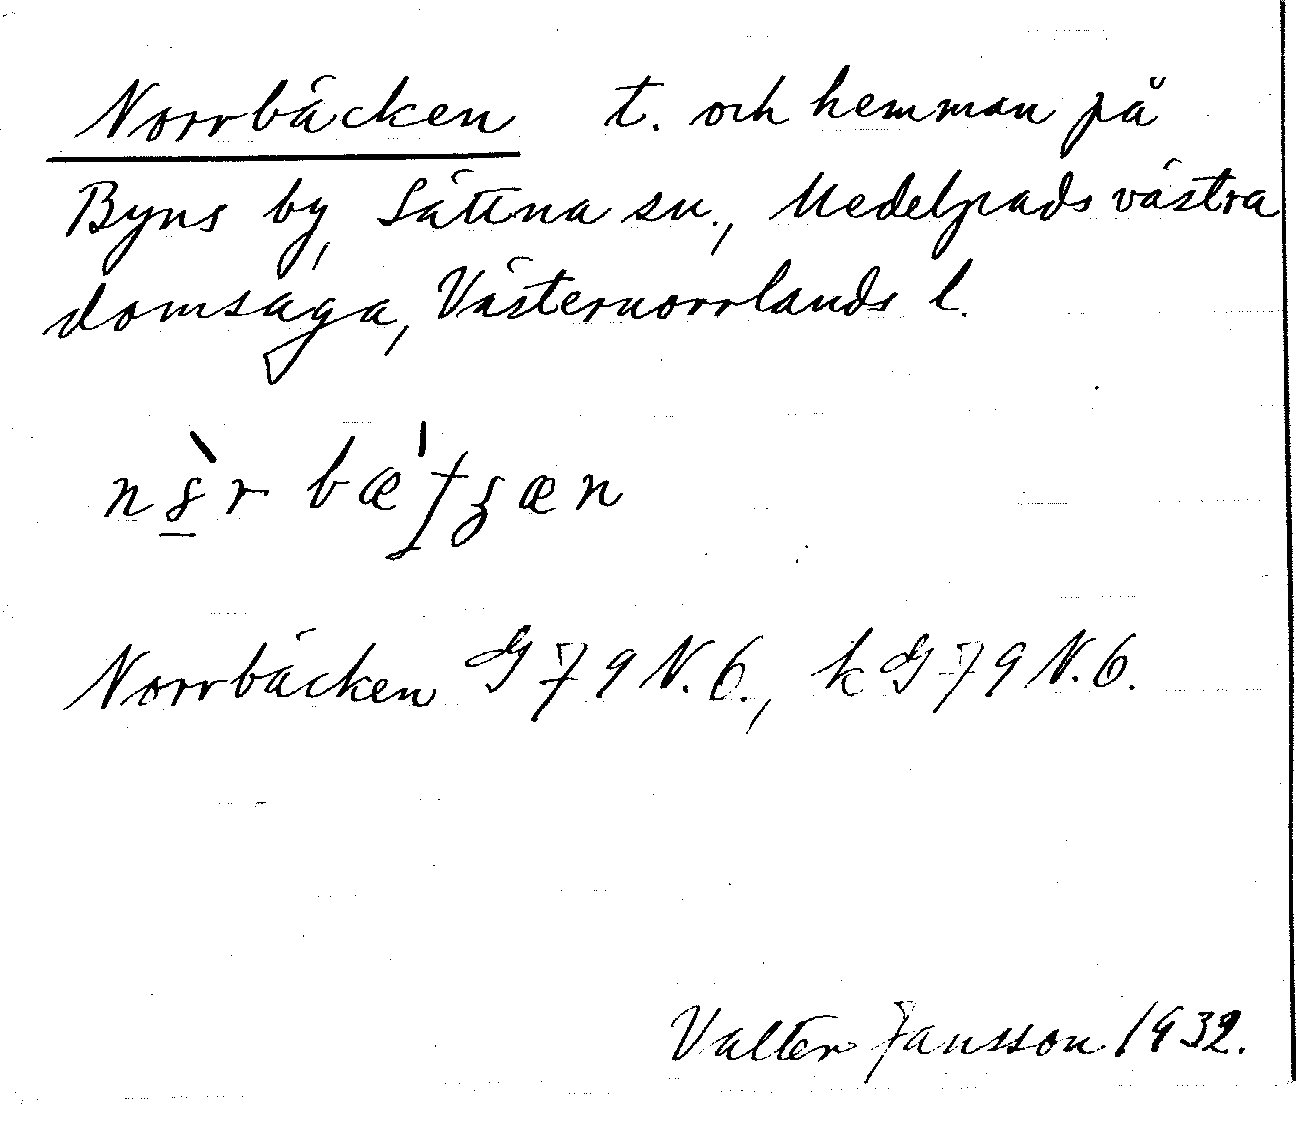 Norrbäcken t. och hemman på
Byns by, Sättna sn., Medelpads västra
domsaga, Västernorrlands l.
Norrbäcken GJ 79 N.6., k GJ 79 N.6.
Valter Jansson 1932.